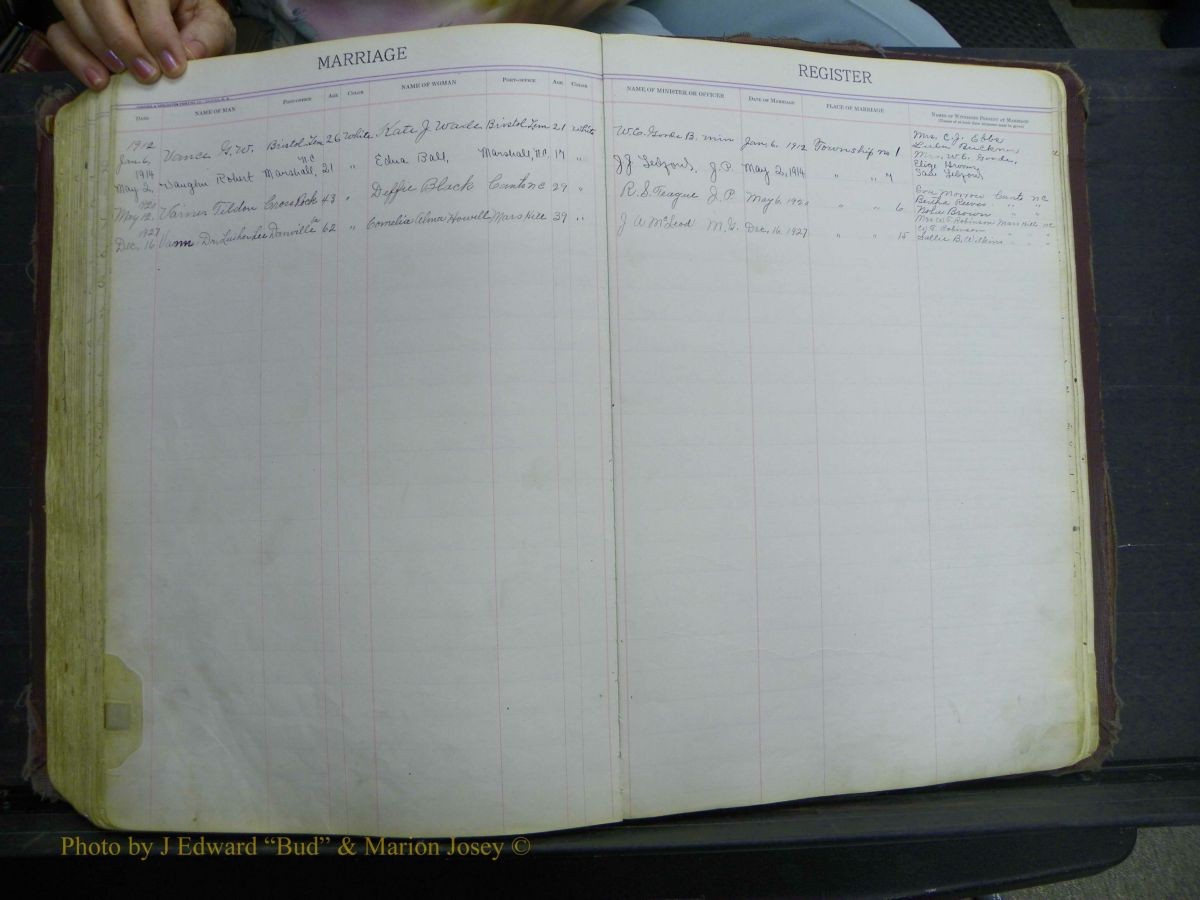 MARRIAGE
DATE NAME OF MAN POST-OFFICE AGE COLOR NAME OF WOMAN POST-OFFICE AGE COLOR
1912
Jan 6, Vance G. W. Bristol Ten 26 White Kate J Wade Bristol Ten 21 White
1914 NC
May 2, Vaughn Robert Marshall, 21 " Edna Ball, Marshall, N.C. 17 "
May 12, Tildon 43 " Deffie Black N C 29 "
1927 Va
Dec. 16 Vann Dr. Luther Lee Danville 62 " Cornelia Alma Howell Mars Hill 39 "
REGISTER
NAME OF MINISTER OR OFFICER DATE OF MARRIAGE PLACE OF MARRIAGE NAMES OF WITNESSES PRESENT AT MARRIAGE
Mrs. C. J. Ebbs
W. C. Goode B. min Jan 6. 1912 Township no 1
Mrs. W. C. Goode,
J. J. J. P. May 2, 1914 " "
R. S. Teague J. P. May 6. 192 " " 6 Morrow N C
Bertha Reeves " "
Brown " "
J A McLeod M. G. Dec, 16, 1927 " " 15 Robinson Mars Hill N C
Robinson " " "
Sallie B. Wilkins " " "
Photo by J Edward “Bud” & Marion Josey ©